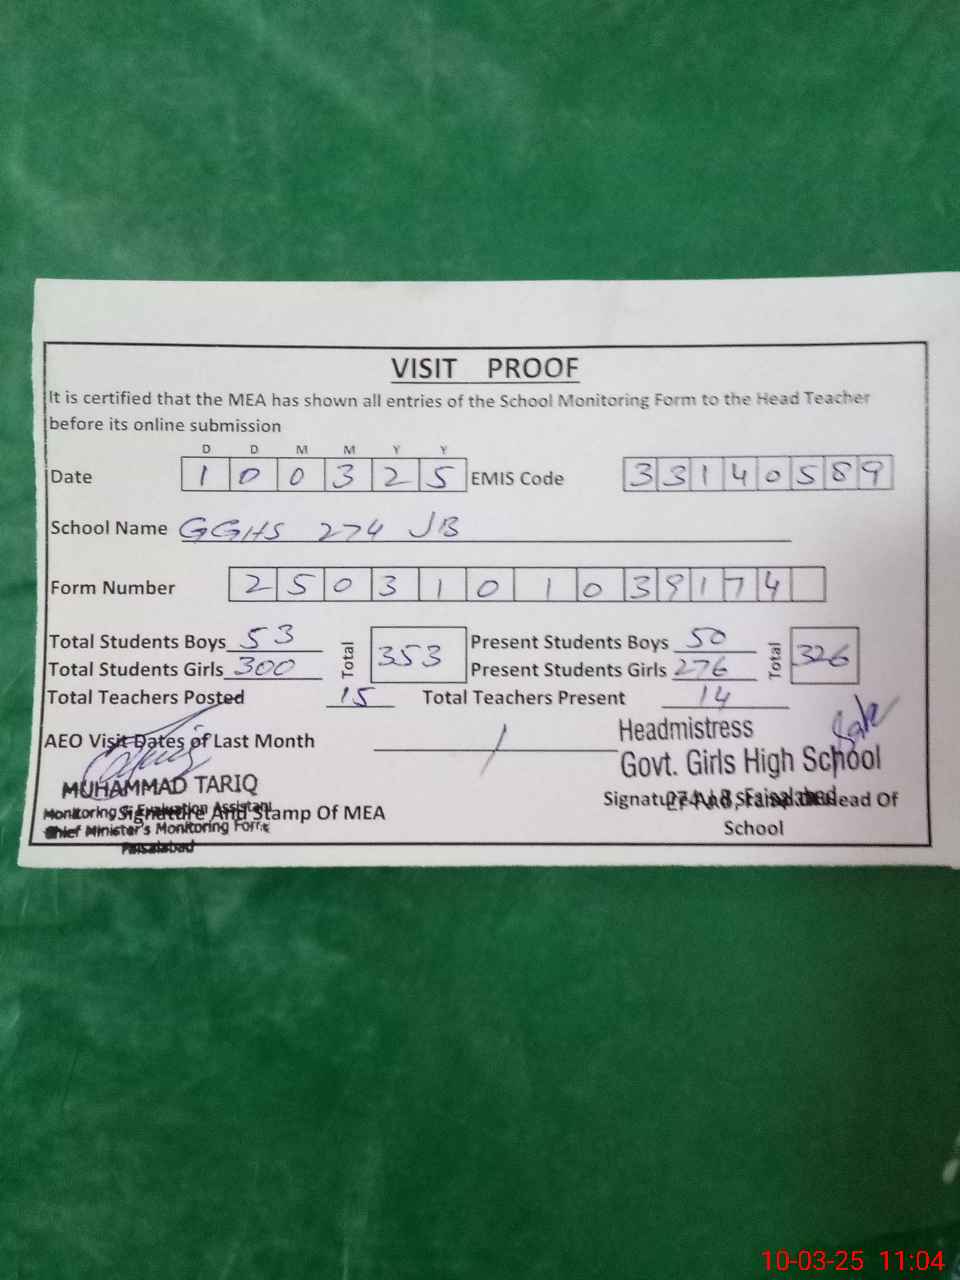 VISIT PROOF
It is certified that the MEA has shown all entries of the School Monitoring Form to the Head Teacher
before its online submission
D D M M Y Y
Date 1 0 0 3 2 5 EMIS Code 3 3 1 4 0 5 8 9
School Name GGHS 274 JB
Form Number 2 5 0 3 1 0 1 0 3 9 1 7 4
Total Students Boys 53 Total 353 Present Students Boys 50 Total 326
Total Students Girls 300 Present Students Girls 276
Total Teachers Posted 15 Total Teachers Present 14
AEO Visit Dates of Last Month /
Headmistress
Govt. Girls High School
274 J.B, Faisalabad
MUHAMMAD TARIQ
Monitoring & Evaluation Assistant
Chief Minister's Monitoring Force
Faisalabad
Signature And Stamp Of MEA
Signature And Stamp Of Head Of
School
10-03-25 11:04